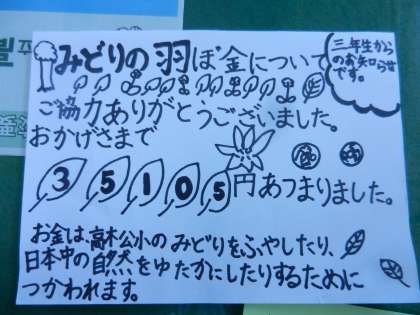 みどりの羽ぼ金について
三年生から
のお知らせ
です。
ご協力ありがとうございました。
おかげさまで
35105円あつまりました。
お金は、高木公小のみどりをふやしたり、
日本中の自然をゆたかにしたりするために
つかわれます。